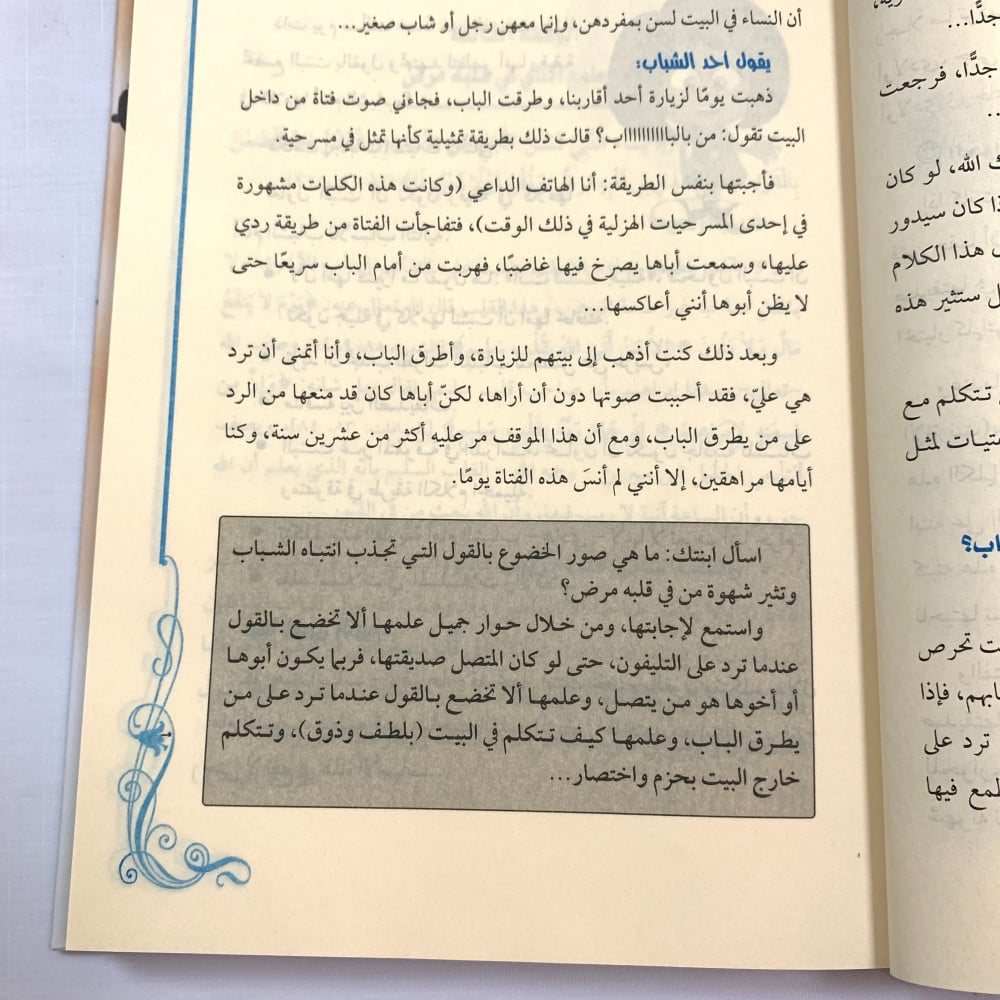 أن النساء في البيت لسن بمفردهن، وإنما معهن رجل أو شاب صغير...
يقول أحد الشباب:
ذهبت يومًا لزيارة أحد أقاربنا، وطرقت الباب، فجاءني صوت فتاة من داخل
البيت تقول: من بالبااااااااااب؟ قالت ذلك بطريقة تمثيلية كأنها تمثل في مسرحية.
فأجبتها بنفس الطريقة: أنا الهاتف الداعي (وكانت هذه الكلمات مشهورة
في إحدى المسرحيات الهزلية في ذلك الوقت)، فتفاجأت الفتاة من طريقة ردي
عليها، وسمعت أباها يصرخ فيها غاضبًا، فهربت من أمام الباب سريعًا حتى
لا يظن أبوها أنني أعاكسها...
وبعد ذلك كنت أذهب إلى بيتهم للزيارة، وأطرق الباب، وأنا أتمنى أن ترد
هي عليّ، فقد أحببت صوتها دون أن أراها، لكنّ أباها كان قد منعها من الرد
على من يطرق الباب، ومع أن هذا الموقف مر عليه أكثر من عشرين سنة، وكنا
أيامها مراهقين، إلا أنني لم أنسَ هذه الفتاة يومًا.
اسأل ابنتك: ما هي صور الخضوع بالقول التي تجذب انتباه الشباب
وتثير شهوة من في قلبه مرض؟
واستمع لإجابتها، ومن خلال حوار جميل علمها ألا تخضع بالقول
عندما ترد على التليفون، حتى لو كان المتصل صديقتها، فربما يكون أبوها
أو أخوها هو من يتصل، وعلمها ألا تخضع بالقول عندما ترد على من
يطرق الباب، وعلمها كيف تتكلم في البيت (بلطف وذوق)، وتتكلم
خارج البيت بحزم واختصار...
جدًّا...
جدًّا، فرجعت
الله، لو كان
كان سيدور
هذا الكلام
ستثير هذه
تتكلم مع
لمثل
تحرص
فإذا
ترد على
فيها